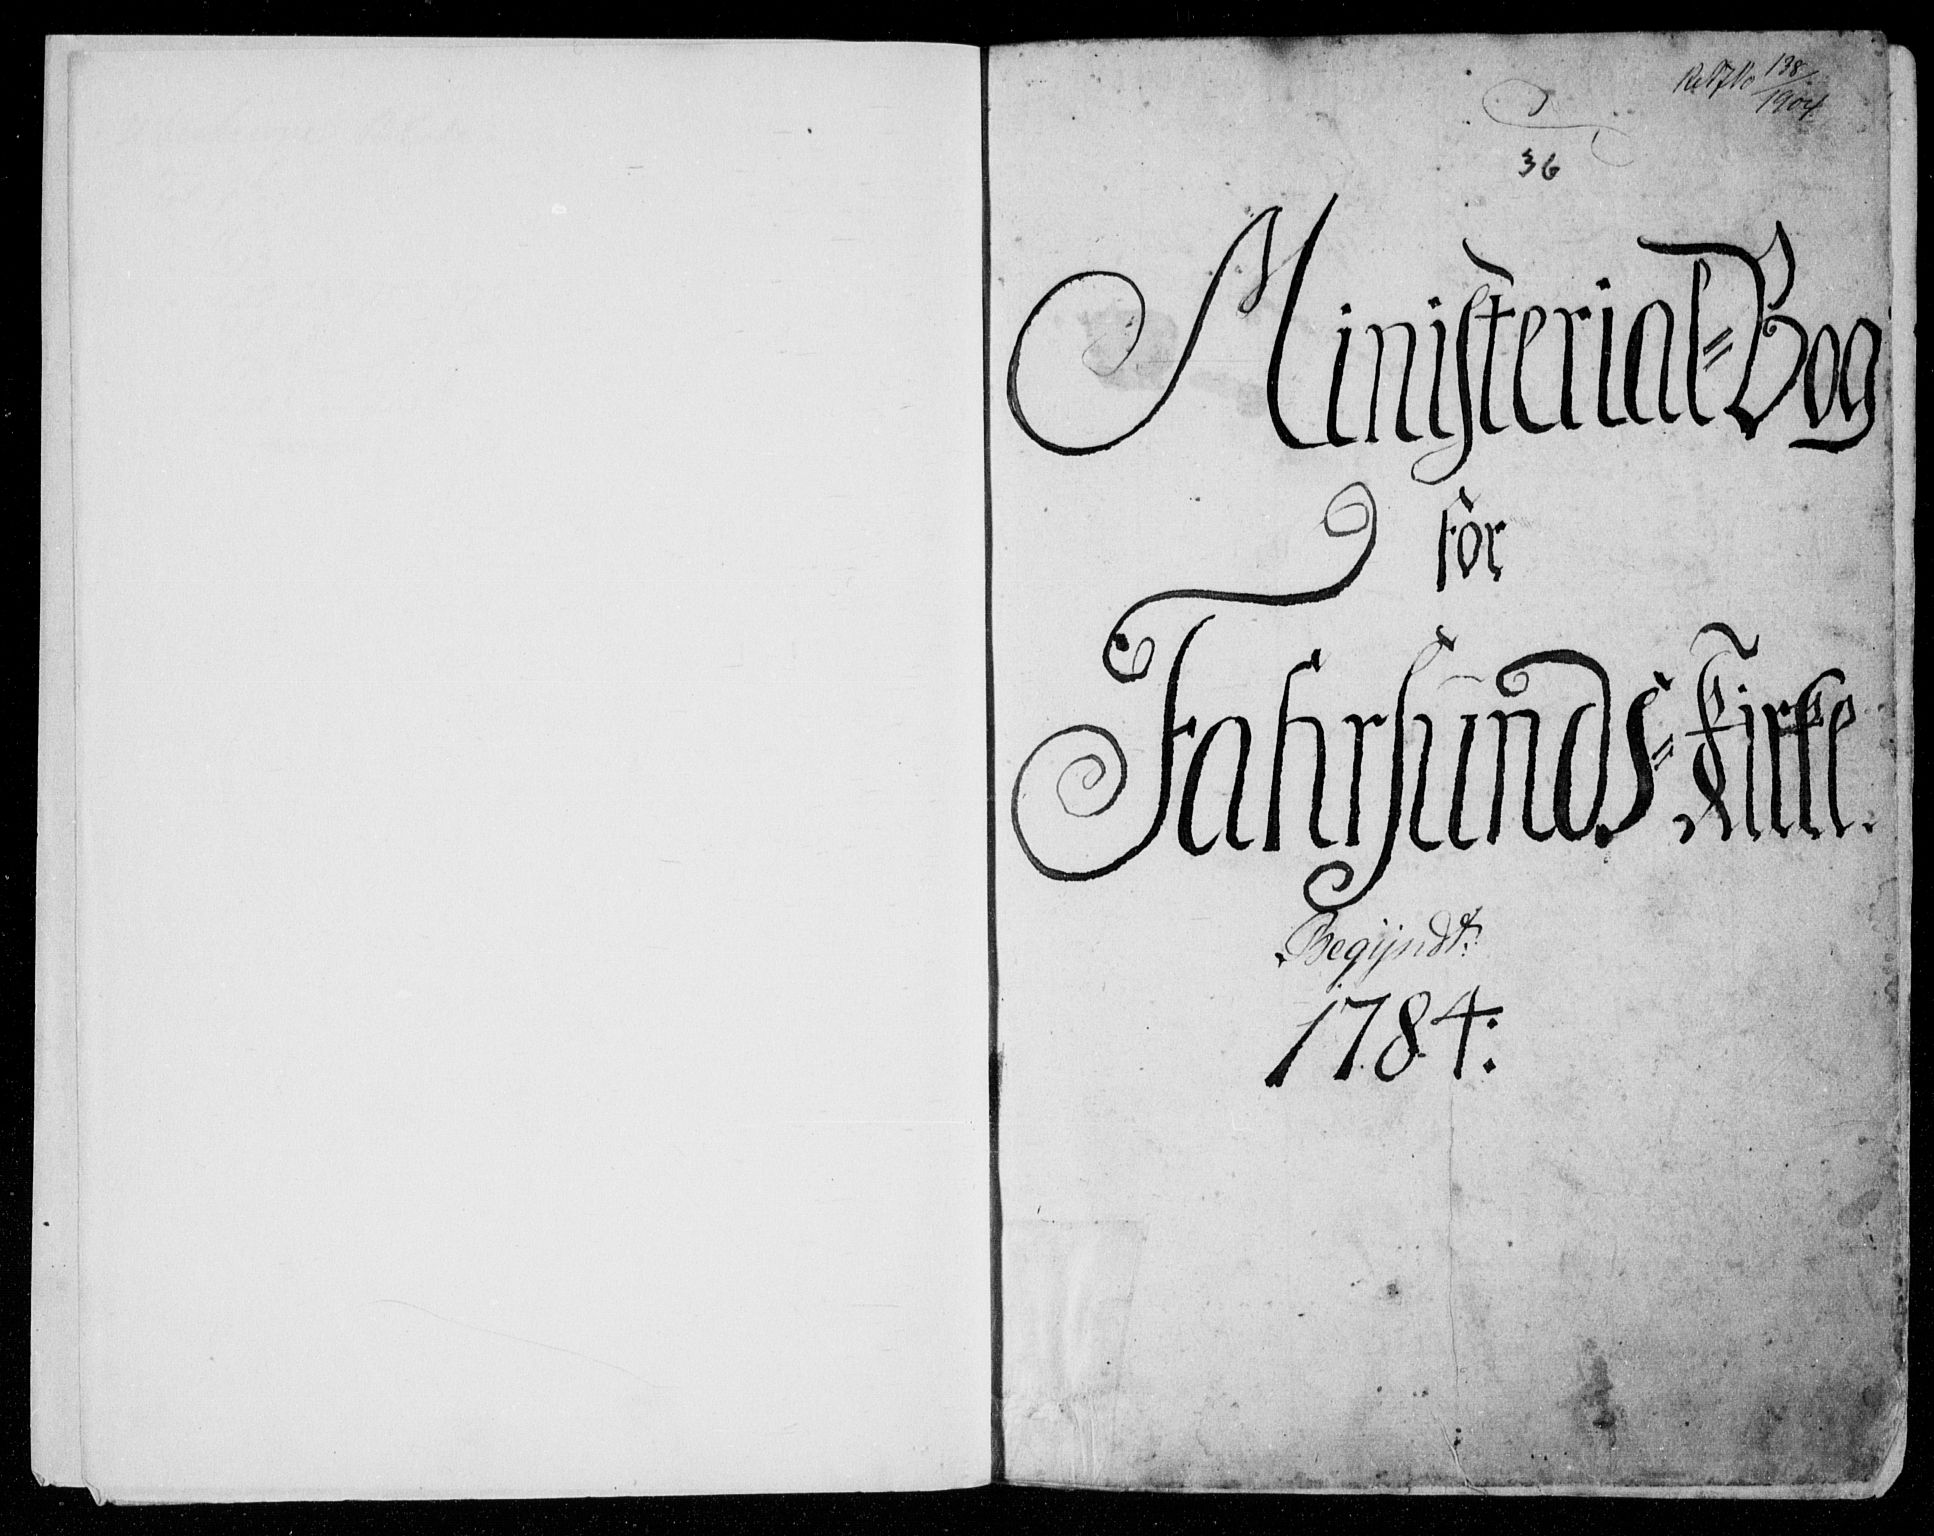 138/1904
36
Ministerial=Bog
for
Fahrsunds=Kirke.
Begyndt:
1784: